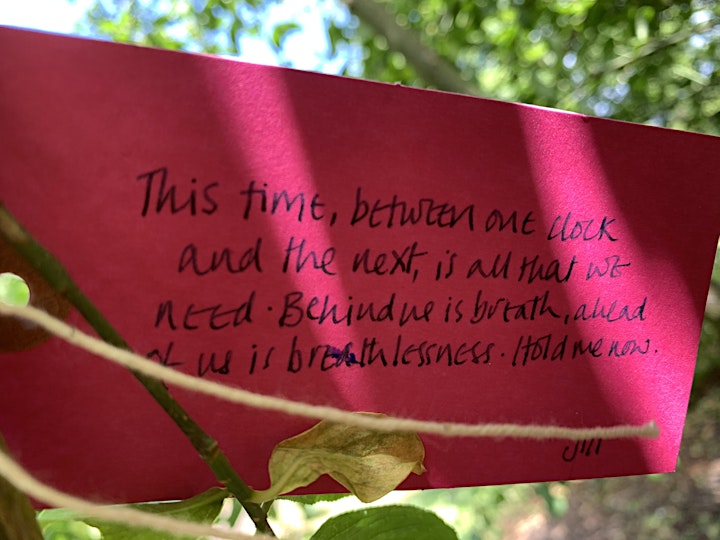 This time, between one clock
and the next, is all that we
need. Behind us is breath, ahead
of us is breathlessness. Hold me now.
Jill